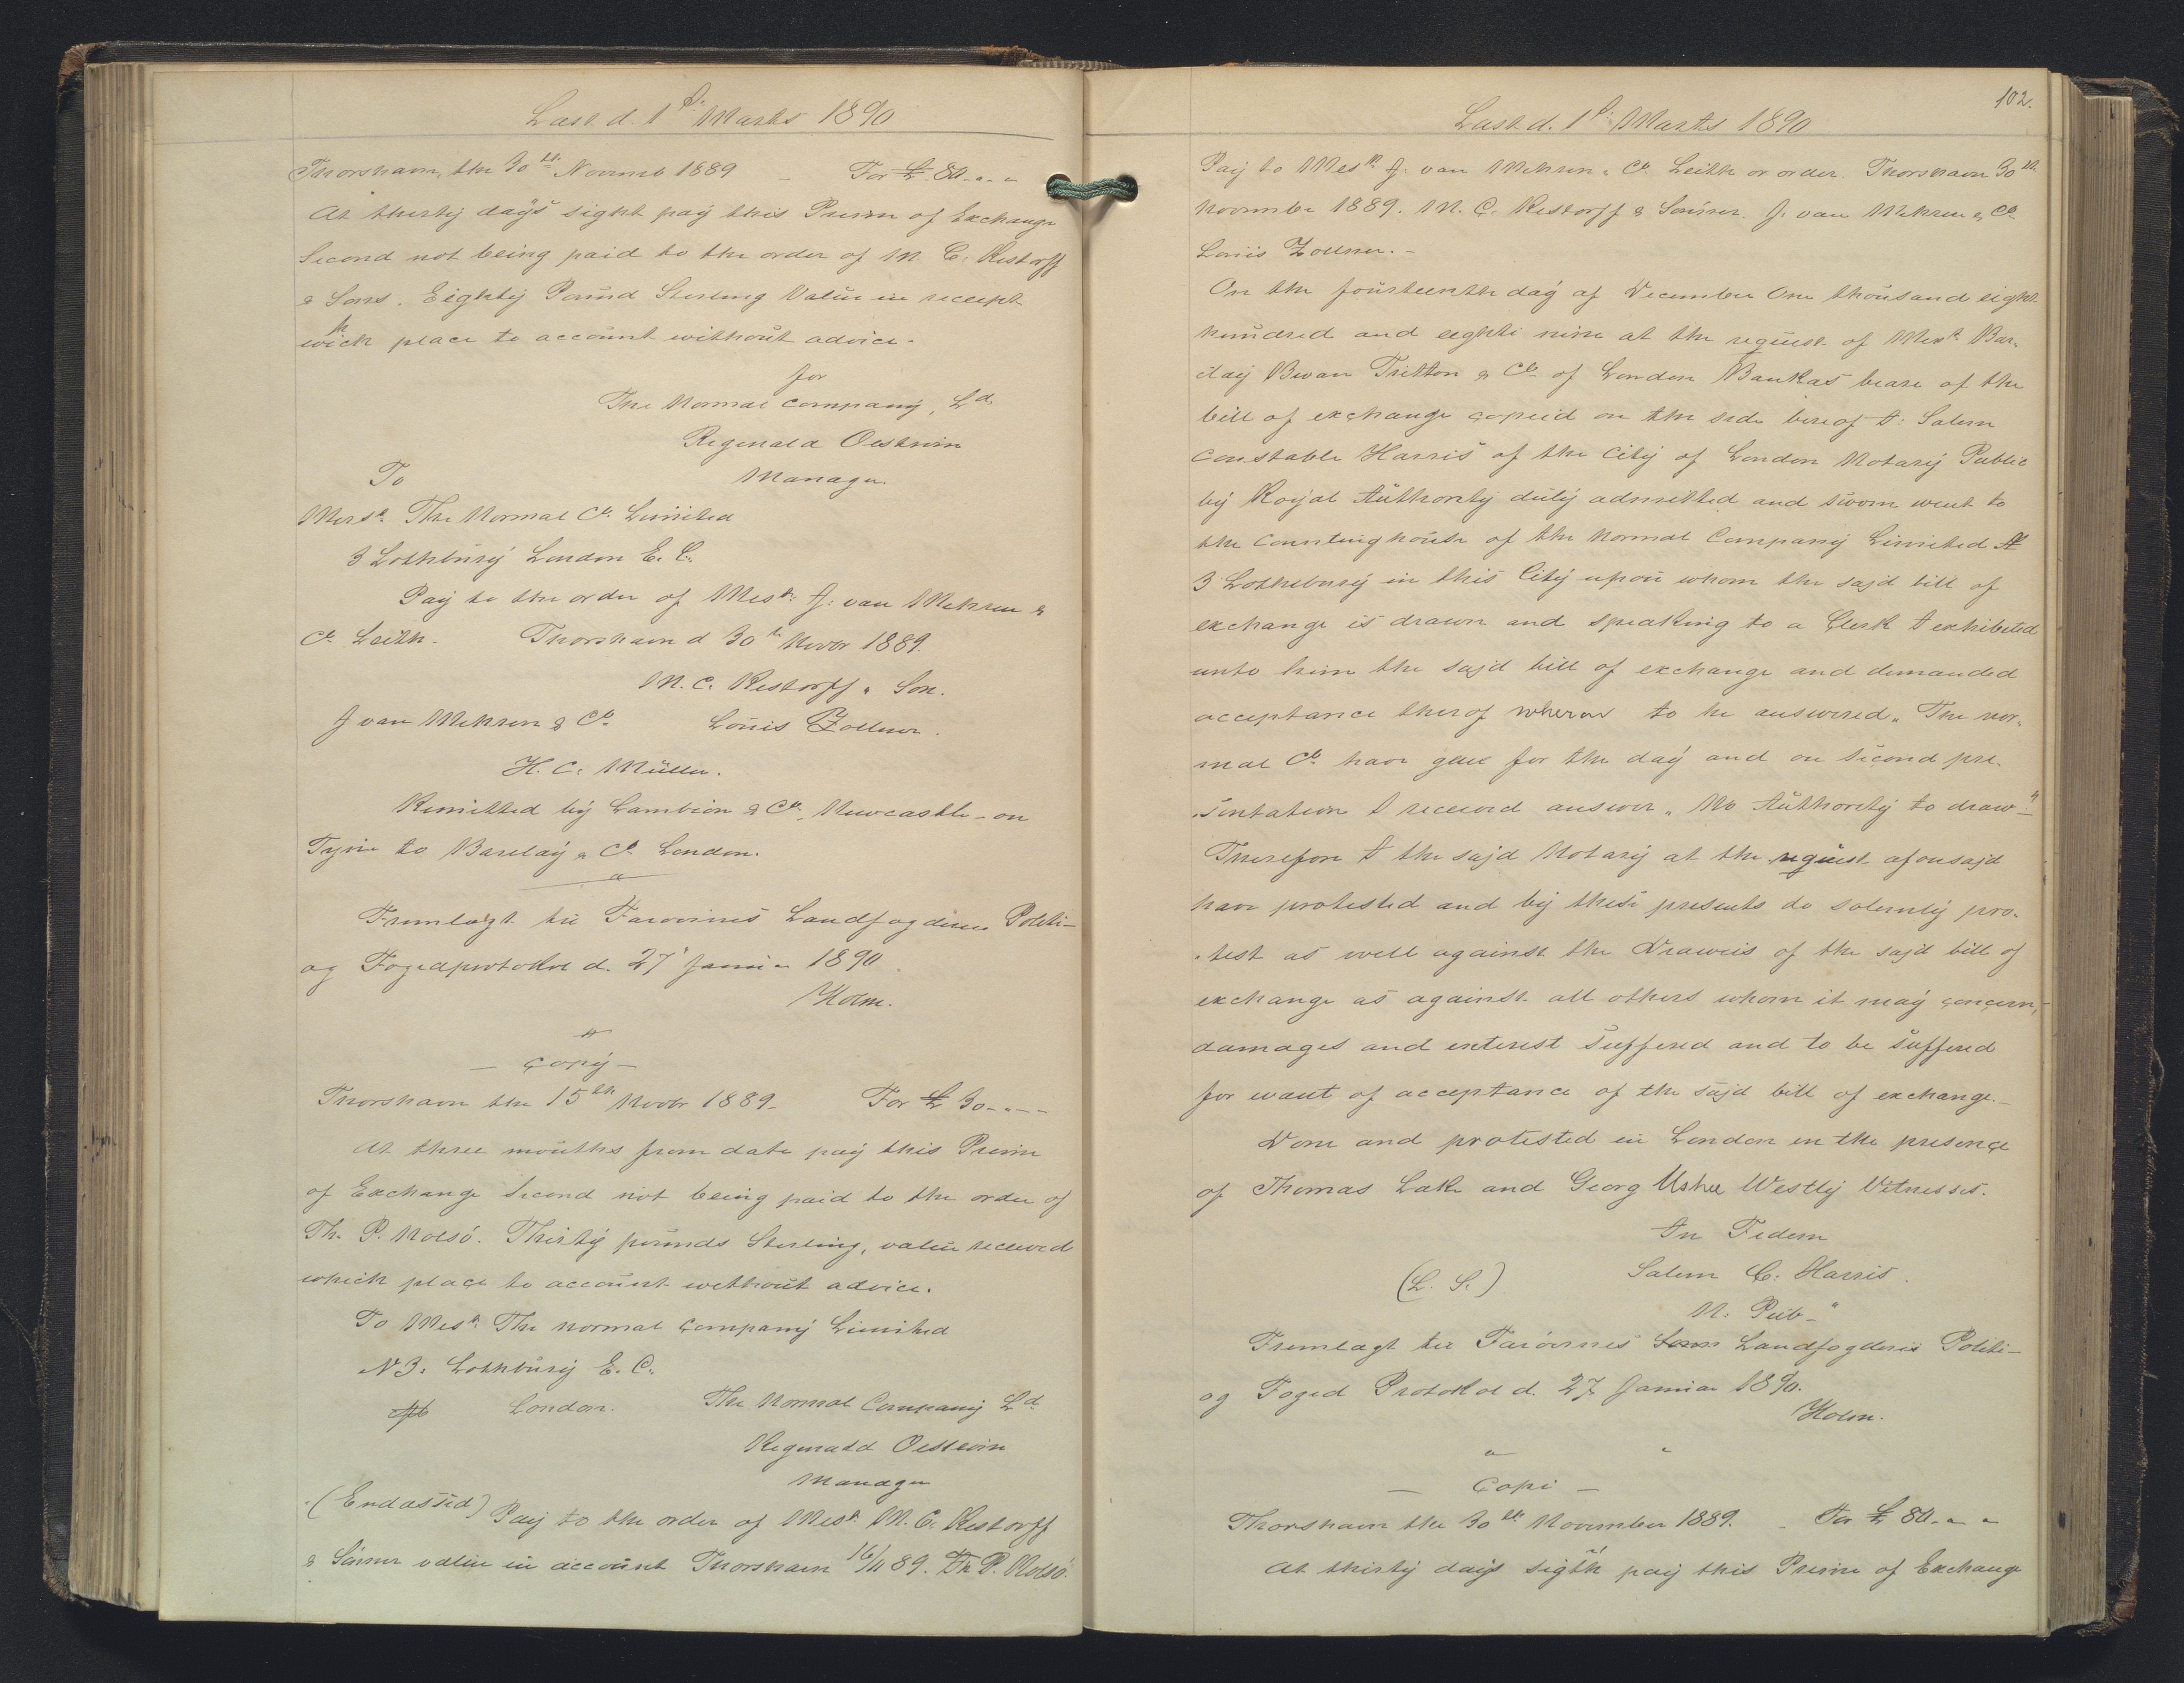 Læst d. 1ste Marts 1890
Thorshavn, the 30th Novemb 1889 – For £ 80 „ „
At thirty day's sight pay this Prima of Exchange
Second not being paid to the order of M. C. Restorff
& Sons. Eighty Pound Sterling Value in receipt
which place to account without advice.
for
The Normal Company, Ld
Reginald Oestrem
To Manager
Messrs. The Normal Co. Limited
3 Lothbury London E. C.
Pay to the order of Messrs. J. van Mehren &
Co. Leith. Thorshavn d 30th Novbr 1889.
M. C. Restorff & Son.
J van Mehren & Co. Louis Zollner.
H. C. Müller.
Remitted by Lambton & Co, Newcastle-on
Tyne to Barclay & Co. London.
Fremlagt til Færoernes Landfogderies Politi-
og Fogedprotokol d. 27' Januar 1890.
Holm.
– Copy –
Thorshavn the 15th Novbr 1889. For £ 30 - - -
At three months from date pay this Prima
of Exchange Second not being paid to the order of
Th. P. Nolsö. Thirty pounds Sterling, value received
which place to account without advice.
To Messrs. The normal Company Limited
N 3. Lothbury E. C.
London. The Normal Company Ld
Reginald Oestrem
Manager
(Endossed) Pay to the order of Messrs. M. C. Restorff
& Sönner value in account Thorshavn 16/11 89. Th P. Nolsö.
102.
Læst d. 1ste Marts 1890
Pay to Messrs J. van Mehren & Co. Leith or order. Thorshavn 30th
November 1889. M. C. Restorff & Sönner. J. van Mehren & Co.
Louis Zollner. –
On the fourteenth day af December One thousand eight
hundred and eighti nine at the request of Messrs Bar-
clay Bevan Tritton & Co. of London Bankas beare of the
bill of exchange copied on the side hereof I. Salem
Constable Harris of the City of London Notary Public
by Royal Authority duly admitted and sworn went to
the Countinghouse of the Normal Company Limited At
3 Lothebury in this City upon whom the sajd bill of
exchange is drawn and speaking to a Clerk I exhibited
unto him the sajd bill of exchange and demanded
acceptance therof wheron to he answered „ The nor„
mal Co. have gone for the day and on second pre-
sentation I received answer „ No Authority to draw"
Therefore I the sajd Notary at the request aforesajd
have protested and by these presents do solemnly pro-
test as well against the Drawers of the sajd bill of
exchange as against all others whom it may concern,
damages and interest suffered and to be suffered
for want of acceptance of the sajd bill of exchange. –
Done and protested in London in the presence
of Thomas Lake and Georg Usher Westly Witnesses.
In Fidem
(L. S.) Salem C. Harris.
N. Pub-"
Fremlagt til Færöernes Landfogderis Politi-
og Foged Protokol d. 27 Januar 1890.
Holm.
– Copi –
Thorshavn the 30th November 1889. – For £ 80 „ „
At thirty days sigth pay this Prima of Exchange